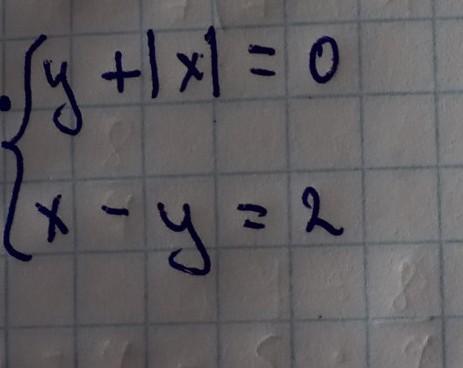 y + |x| = 0
x - y = 2